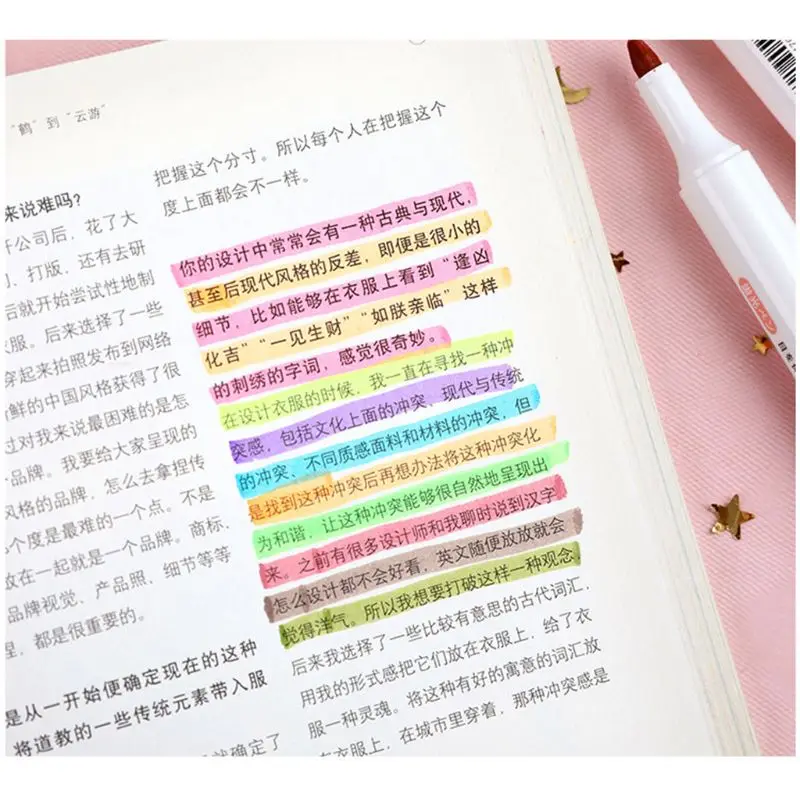 “鹤”到“云游”
来说难吗?
开公司后，花了大
、打版，还有去研
后就开始尝试性地制
衣服。后来选择了一些
穿起来拍照发布到网络
鲜的中国风格获得了很
过对我来说最困难的是怎
品牌。我要给大家呈现的
风格的品牌，怎么去拿捏传
个度是最难的一个点。不是
放在一起就是一个品牌。商标、
品牌视觉、产品照、细节等等
，都是很重要的。
是从一开始便确定现在的这种
将道教的一些传统元素带入服
就确定了
把握这个分寸。所以每个人在把握这个
度上面都会不一样。
你的设计中常常会有一种古典与现代，
甚至后现代风格的反差，即便是很小的
细节，比如能够在衣服上看到“逢凶
化吉”“一见生财”“如朕亲临”这样
的刺绣的字词，感觉很奇妙。
在设计衣服的时候，我一直在寻找一种冲
突感，包括文化上面的冲突，现代与传统
的冲突、不同质感面料和材料的冲突，但
是找到这种冲突后再想办法将这种冲突化
为和谐，让这种冲突能够很自然地呈现出
来。之前有很多设计师和我聊时说到汉字
怎么设计都不会好看，英文随便放放就会
觉得洋气。所以我想要打破这样一种观念
后来我选择了一些比较有意思的古代词汇，
用我的形式感把它们放在衣服上，给了衣
服一种灵魂。将这种有好的寓意的词汇放
在衣服上，在城市里穿着，那种冲突感是